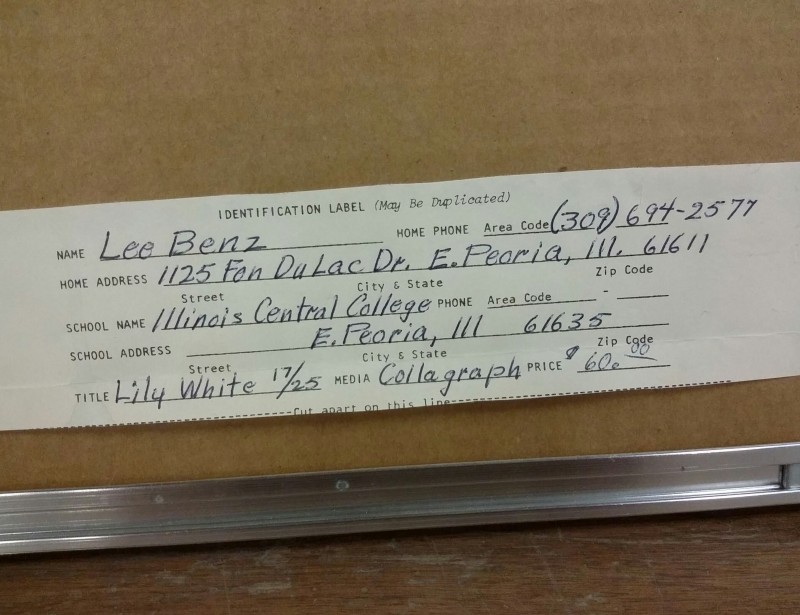 IDENTIFICATION LABEL (May Be Duplicated)
NAME Lee Benz HOME PHONE Area Code (309) 694-2577
HOME ADDRESS 1125 Fon DuLac Dr. E. Peoria, Ill. 61611
Street City & State Zip Code
SCHOOL NAME Illinois Central College PHONE Area Code -
SCHOOL ADDRESS E. Peoria, Ill 61635
Street City & State Zip Code
TITLE Lily White 17/25 MEDIA Collagraph PRICE $ 60.00
Cut apart on this line